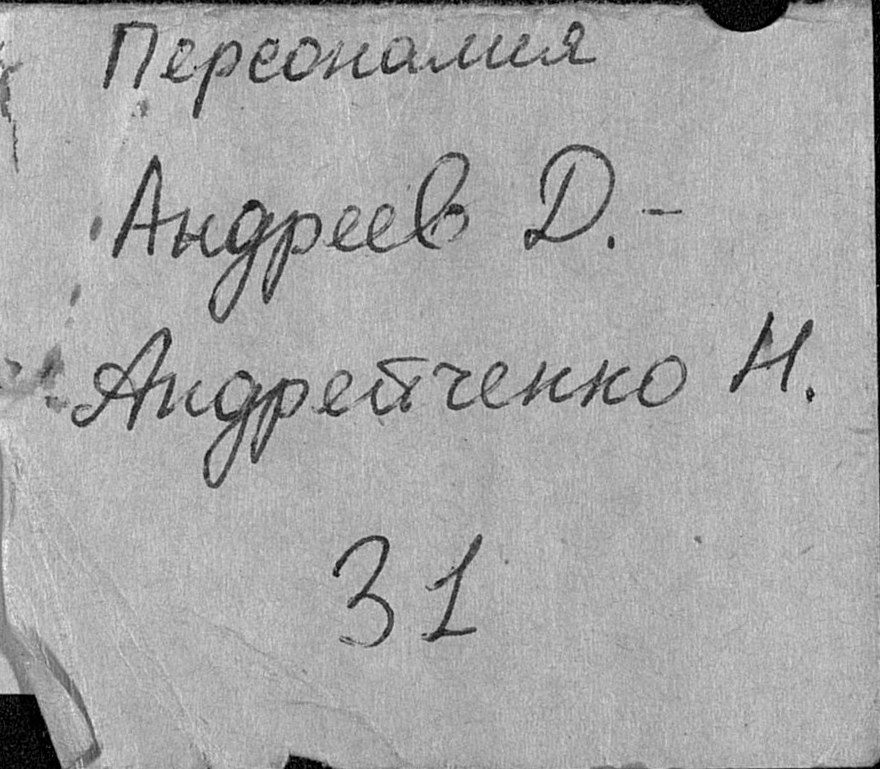 Персоналия
Андреев Д.-
Андрейченко Н.
31